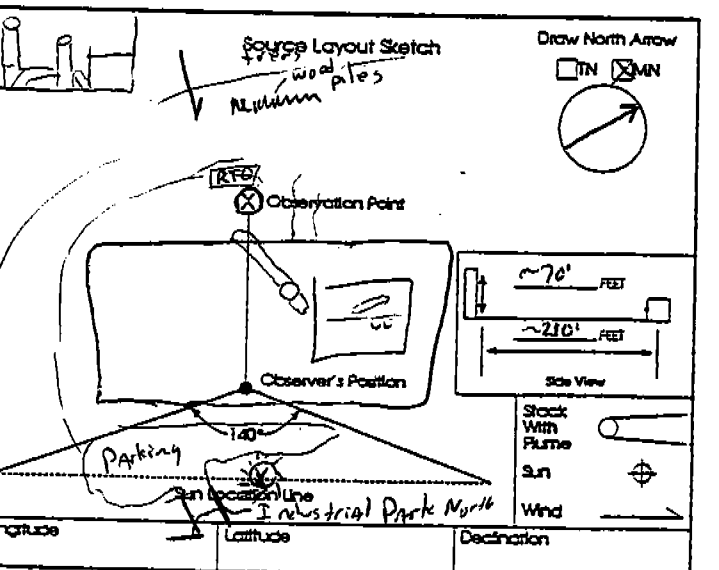 Source Layout Sketch
Draw North Arrow
TN MN
trees
wood piles
RTO
X Observation Point
~70' FEET
~210' FEET
Side View
Observer's Position
140°
Parking
Sun Location Line
Industrial Park North
Stack
With
Plume
Sun
Wind
Latitude
Declination